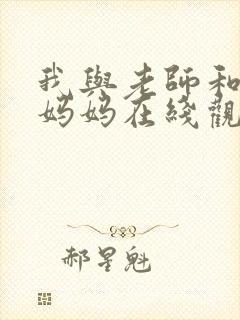 我與老師和
妈妈在綫觀
郝星魁